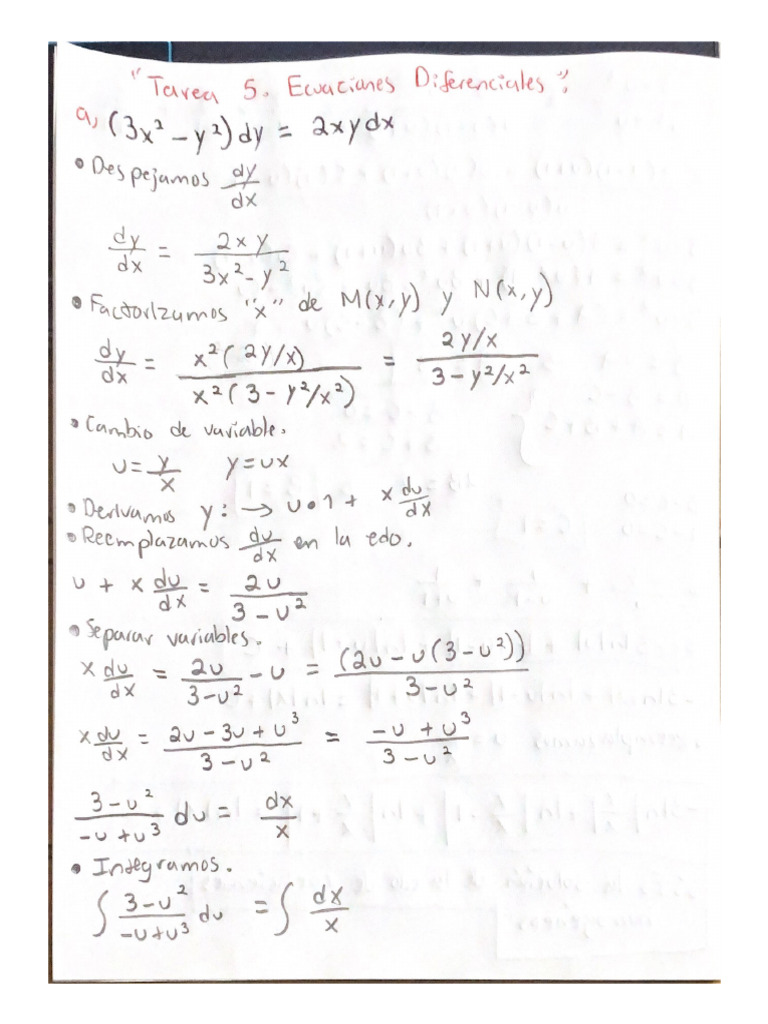 "Tarea 5. Ecuaciones Diferenciales".
a, (3x² - y²) dy = 2xy dx
• Despejamos dy/dx
dy/dx = 2xy/(3x² - y²)
• Factorizamos "x" de M(x,y) y N(x,y)
dy/dx = x²(2y/x)/(x²(3 - y²/x²)) = (2y/x)/(3 - y²/x²)
• Cambio de variable.
u = y/x   y = ux
• Derivamos y: → u•1 + x du/dx
• Reemplazamos du/dx en la edo.
u + x du/dx = 2u/(3 - u²)
• Separar variables.
x du/dx = 2u/(3-u²) - u = (2u - u(3 - u²))/(3 - u²)
x du/dx = (2u - 3u + u³)/(3 - u²) = (-u + u³)/(3 - u²)
(3 - u²)/(-u + u³) du = dx/x
• Integramos.
∫ (3-u²)/(-u+u³) du = ∫ dx/x